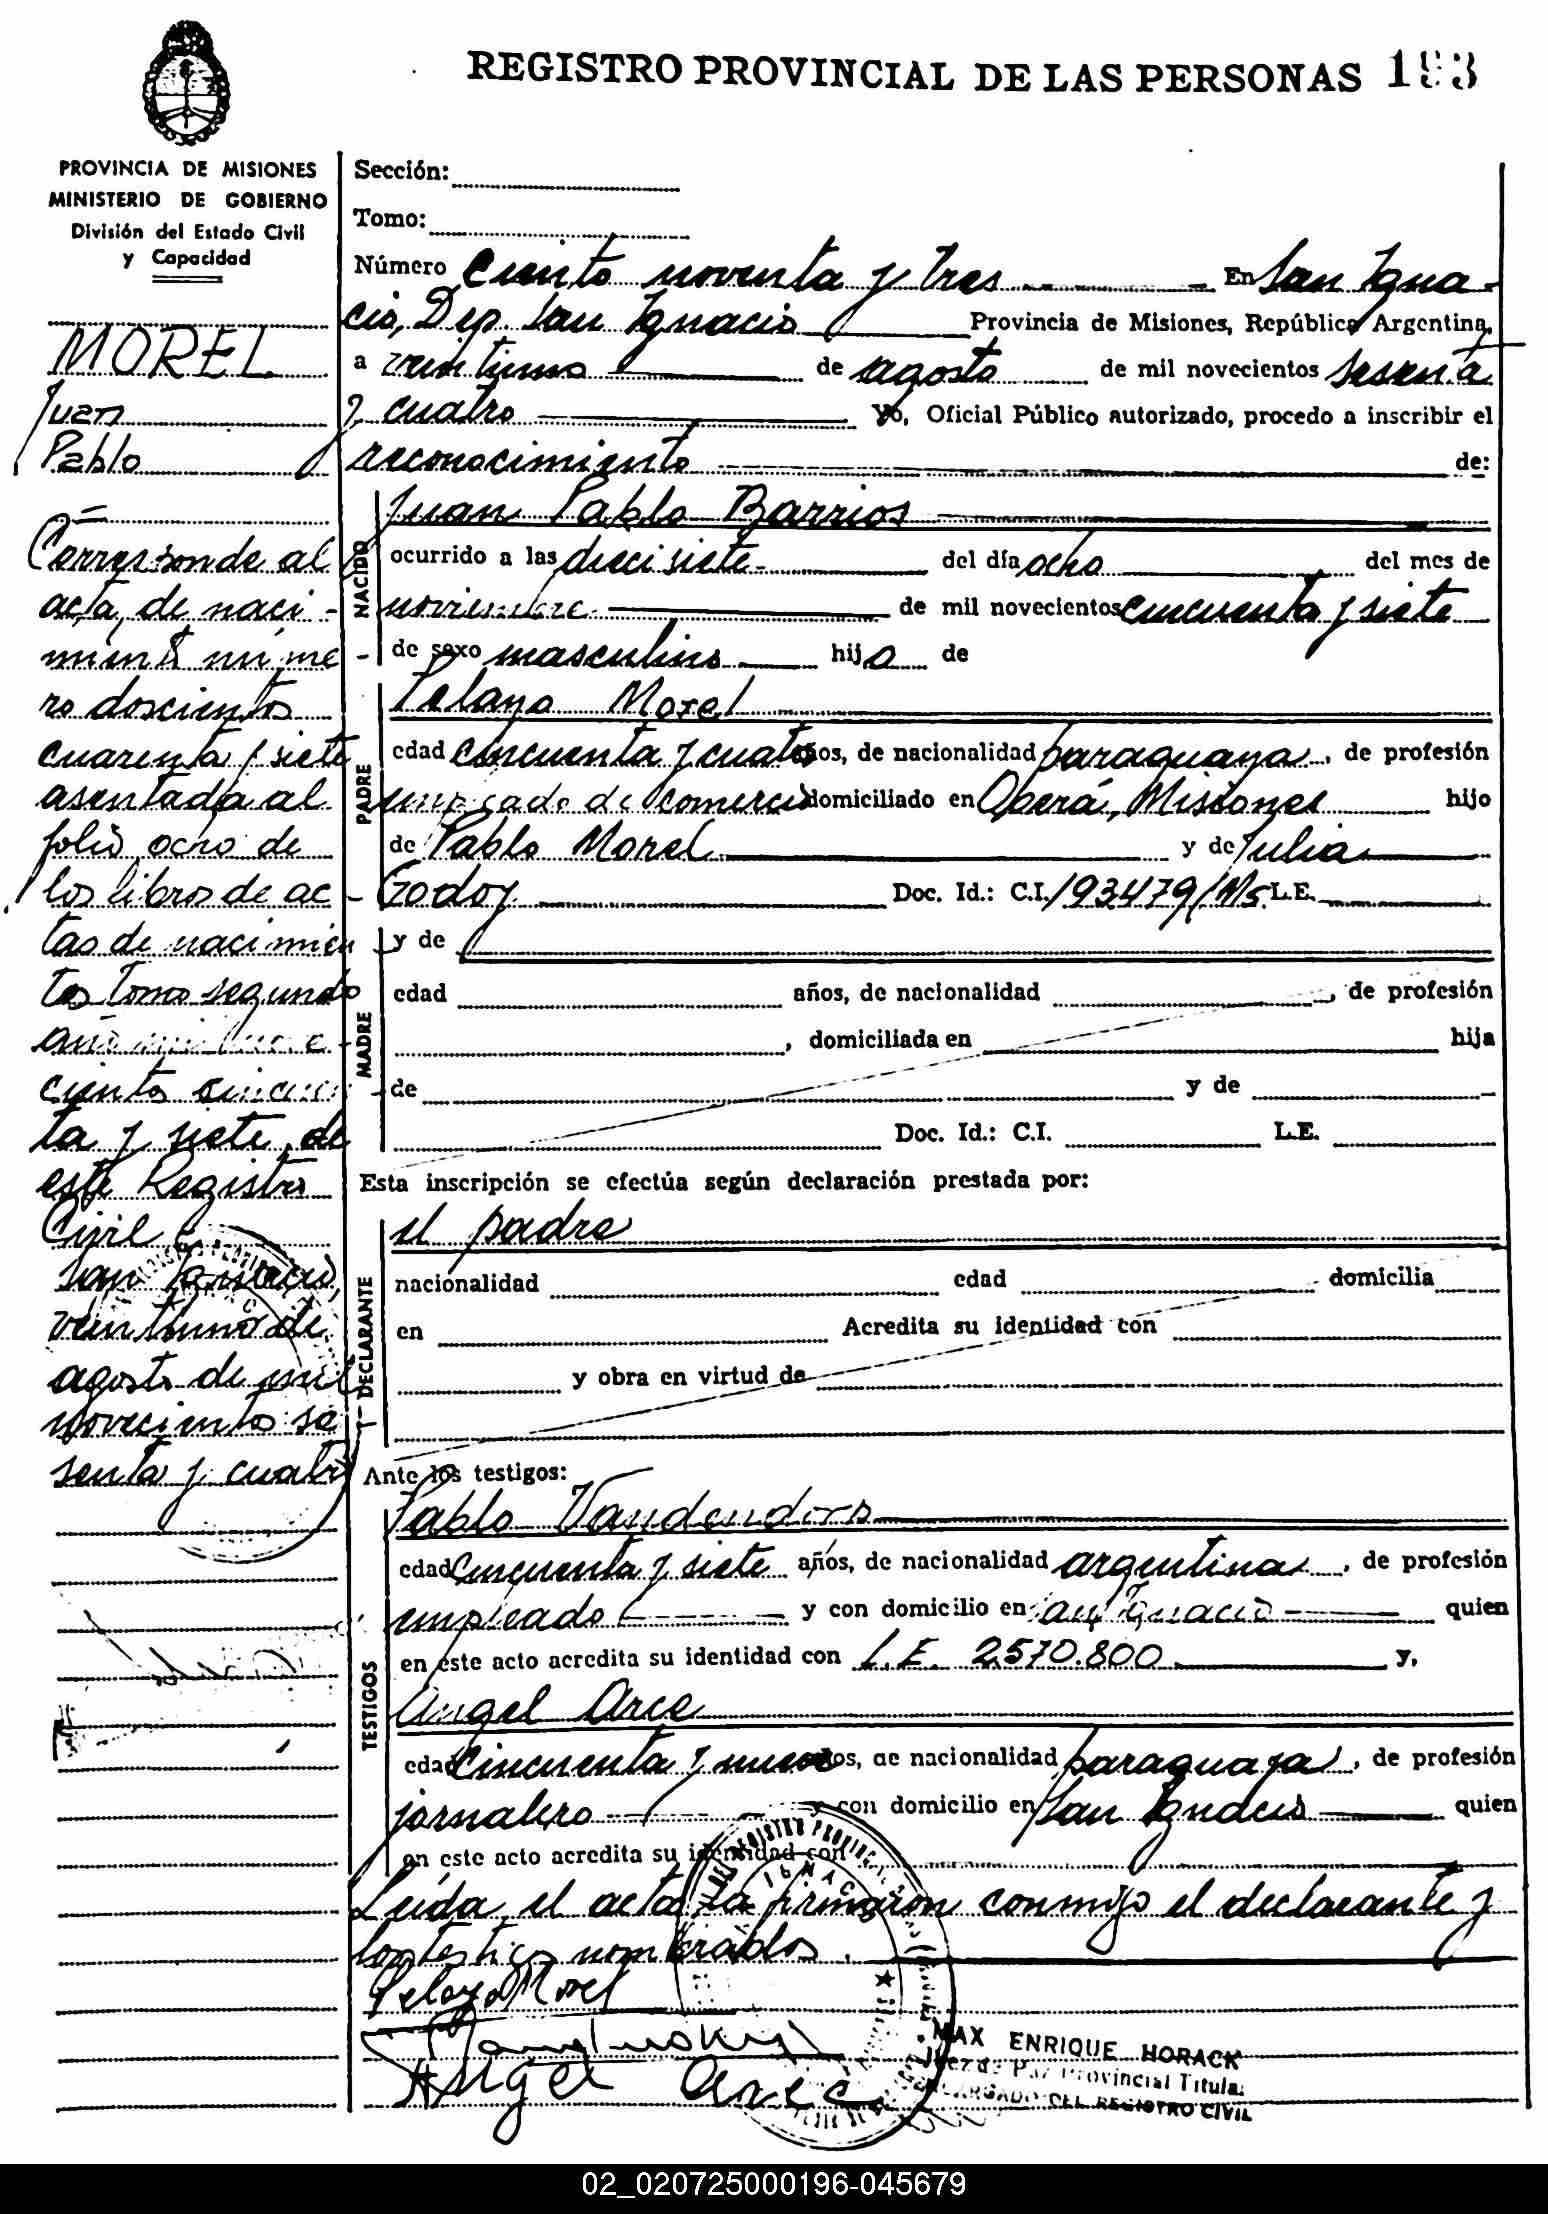 REGISTRO PROVINCIAL DE LAS PERSONAS 193
PROVINCIA DE MISIONES
MINISTERIO DE GOBIERNO
División del Estado Civil
y Capacidad
MOREL
Juan
Pablo
Corresponde al
acta de naci-
miento núme-
ro doscientos
cuarenta y siete
asentada al
folio ocho de
los libros de ac-
tas de nacimien-
tos tomo segundo
año mil nove-
cientos cincuen-
ta y siete de
este Registro
Civil
San Ignacio,
veintiuno de
agosto de mil
novecientos se-
senta y cuatro
Sección:
Tomo:
Número ciento noventa y tres En San Igna-
cio, Dep. San Ignacio Provincia de Misiones, República Argentina,
a veintiuno de agosto de mil novecientos sesenta
y cuatro Yo, Oficial Público autorizado, procedo a inscribir el
reconocimiento de:
NACIDO
Juan Pablo Barrios
ocurrido a las diecisiete del día ocho del mes de
noviembre de mil novecientos cincuenta y siete
de sexo masculino hijo de
PADRE
Pelayo Morel
edad cincuenta y cuatro años, de nacionalidad paraguaya, de profesión
empleado de comercio domiciliado en Oberá, Misiones hijo
de Pablo Morel y de Julia
Godoy Doc. Id.: C.I. 193479/Ms. L.E.
MADRE
y de
edad años, de nacionalidad , de profesión
, domiciliada en hija
de y de
Doc. Id.: C.I. L.E.
Esta inscripción se efectúa según declaración prestada por:
DECLARANTE
el padre
nacionalidad edad domicilia
en Acredita su identidad con
y obra en virtud de
Ante los testigos:
TESTIGOS
Pablo
edad cincuenta y siete años, de nacionalidad argentina, de profesión
empleado y con domicilio en San Ignacio quien
en este acto acredita su identidad con L.E. 2570.800 y,
Angel Arce
edad cincuenta y nueve años, de nacionalidad paraguaya, de profesión
jornalero y con domicilio en San Ignacio quien
en este acto acredita su identidad con
Leída el acta la firmaron conmigo el declarante y
los testigos nombrados.
Pelayo Morel
Angel Arce
MAX ENRIQUE HORACK
Juez de Paz Provincial Titular
ENCARGADO DEL REGISTRO CIVIL
02_020725000196-045679